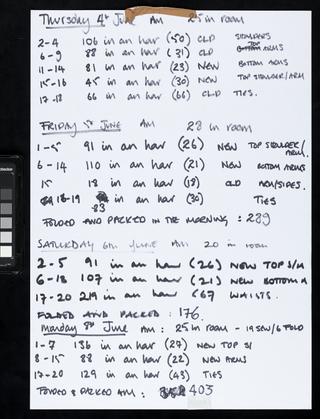 Thursday 4th June AM 25 in room
2-4 106 in an hour (50) OLD SHOULDERS
TOP ARMS
6-9 88 in an hour (31) OLD
11-14 81 in an hour (23) NEW BOTTOM ARMS
15-16 45 in an hour (30) NEW TOP SHOULDER/ARM
17-18 66 in an hour (66) OLD TIES.
FRIDAY 5th JUNE AM 28 in room
1-5 91 in an hour (26) NEW TOP SHOULDER/ARM.
6-14 110 in an hour (21) NEW BOTTOM ARMS
15 18 in an hour (18) OLD ARM/SIDES.
18-19 83 in an hour (30) TIES
FOLDED AND PACKED IN THE MORNING : 289
SATURDAY 6th JUNE AM 20 in room
2-5 91 in an hour (26) NEW TOP S/A
6-13 107 in an hour (21) NEW BOTTOM A
17-20 219 in an hour (67 WAISTS.
FOLDED AND PACKED : 176.
Monday 8th June AM : 25 in room - 19 SEW/6 FOLD
1-7 136 in an hour (27) NEW TOP S/
8-15 88 in an hour (22) NEW ARMS
17-20 129 in an hour (43) TIES
FOLDED & PACKED AM : 403